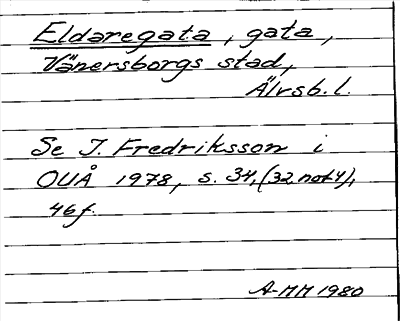 Eldaregata, gata,
Vänersborgs stad,
Älvsb. l.
Se I. Fredriksson i
OUÅ 1978, s. 34, (32 not 4),
46 f.
A-MM 1980